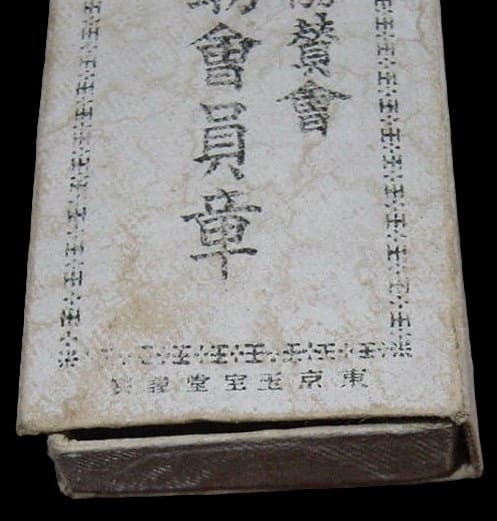 賛會
會員章
東京玉宝堂